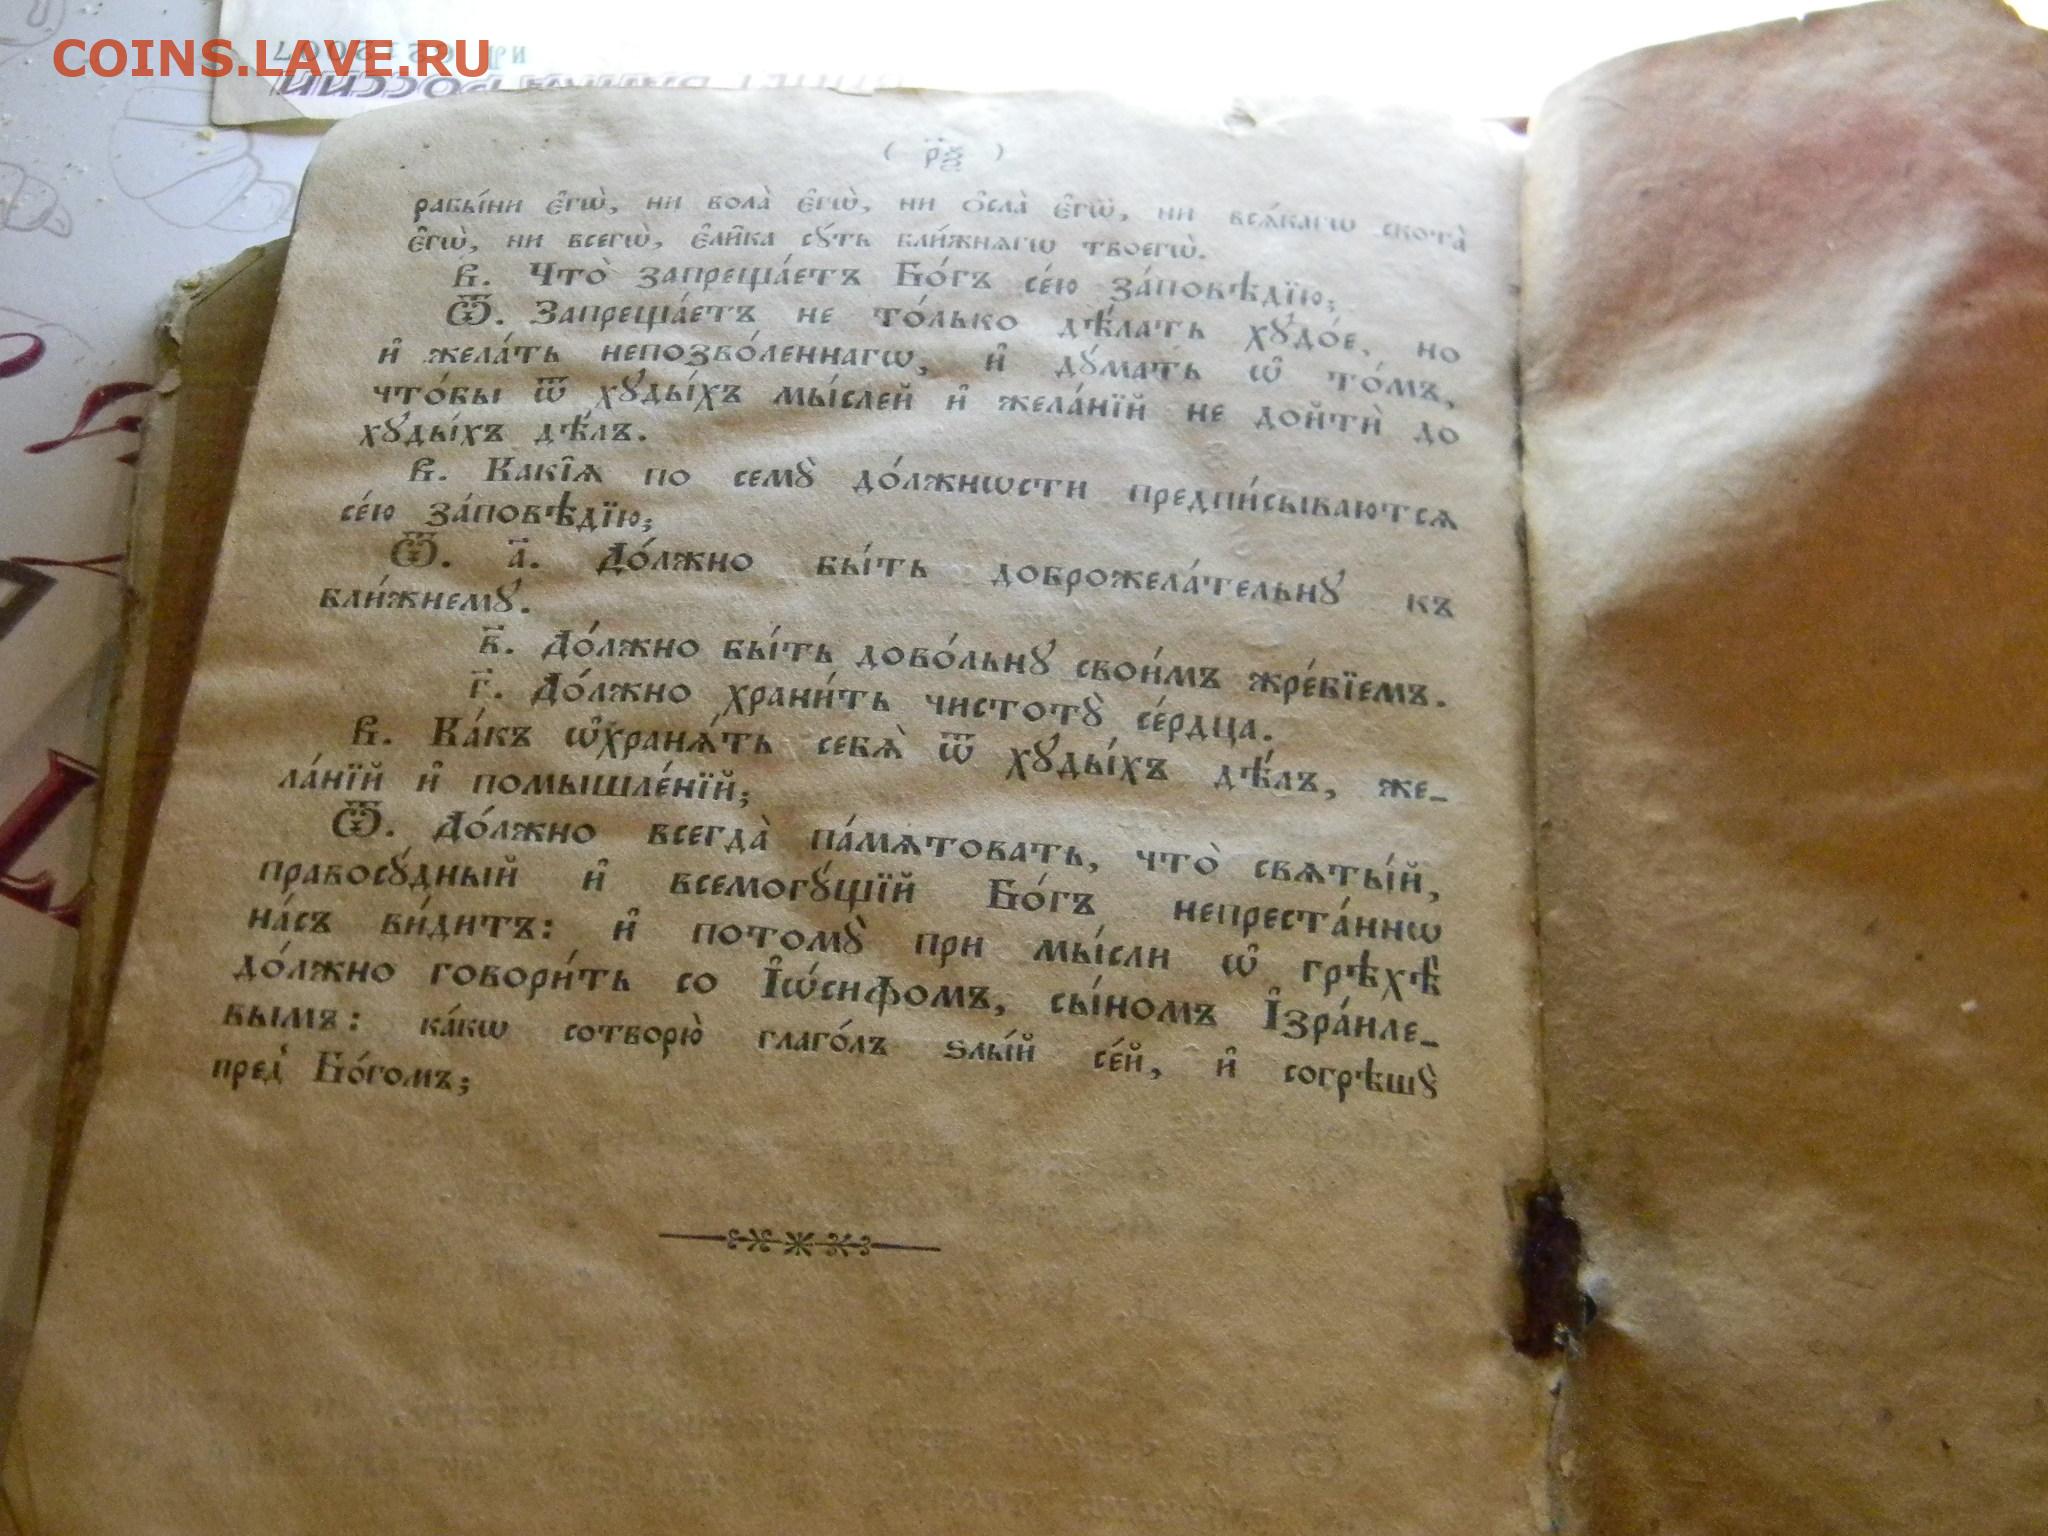 COINS.LAVE.RU
рабы́ни є҆гѡ̀, ни вола̀ є҆гѡ̀, ни ѻ҆сла̀ є҆гѡ̀, ни всѧ́кагѡ скота̀
є҆гѡ̀, ни всегѡ̀, є҆ли̑ка сꙋ́ть бли́жнѧгѡ твоегѡ̀.
В. Что̀ запреща́етъ Бо́гъ се́ю за́повѣдїю;
Ѿ. Запреща́етъ не то́лько дѣ́лать хꙋдо́е, но
и҆ жела́ть непозво́леннагѡ, и҆ дꙋ́мать ѡ҆ то́мъ,
что́бы ѿ хꙋды́хъ мы́слей и҆ жела́нїй не дойтѝ до
хꙋды́хъ дѣ́лъ.
В. Какі̑ѧ по семꙋ̀ до́лжнѡсти предпи́сываютсѧ
се́ю за́повѣдїю;
Ѿ. а҃. До́лжно бы́ть доброжела́тельнꙋ къ
бли́жнемꙋ.
в҃. До́лжно бы́ть дово́льнꙋ свои́мъ жре́бїемъ.
г҃. До́лжно храни́ть чистотꙋ̀ се́рдца.
В. Ка́къ ѡ҆хранѧ́ть себѧ̀ ѿ хꙋды́хъ дѣ́лъ, же_
ла́нїй и҆ помышле́нїй;
Ѿ. До́лжно всегда̀ па́мѧтовать, что̀ свѧты́й,
правосꙋ́дный и҆ всемогꙋ́щїй Бо́гъ непреста́ннѡ
на́съ ви́дитъ: и҆ потомꙋ̀ при мы́сли ѡ҆ грѣхѣ̀
до́лжно говори́ть со І҆ѡ́сифомъ, сы́номъ І҆зра́иле_
вымъ: ка́кѡ сотворю̀ глаго́лъ ѕлы́й се́й, и҆ согрѣшꙋ̀
пред̾ Бо́гомъ;